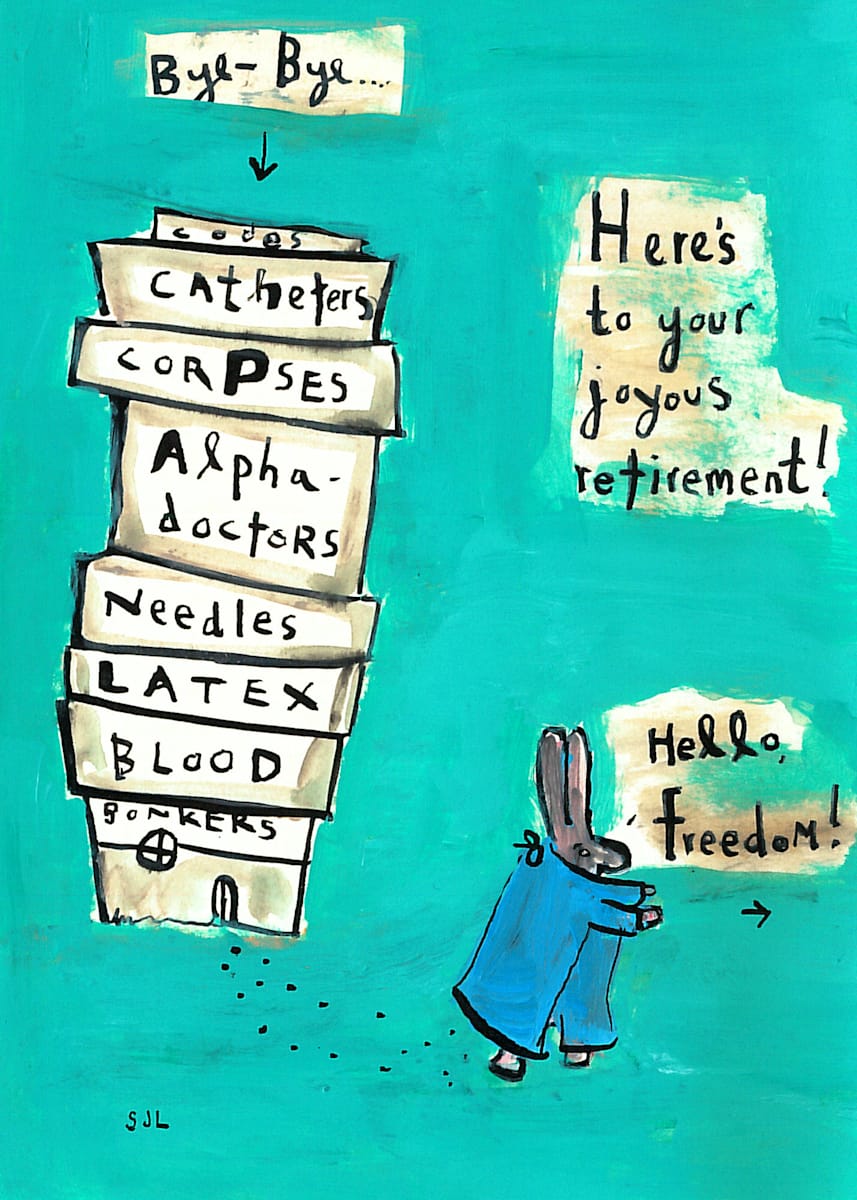 Bye-Bye....
codes
catheters
CORPSES
Alpha-
doctoRs
Needles
LATEX
BLOOD
BONKERS
Here's
to your
joyous
retirement!
Hello,
freedom!
SJL